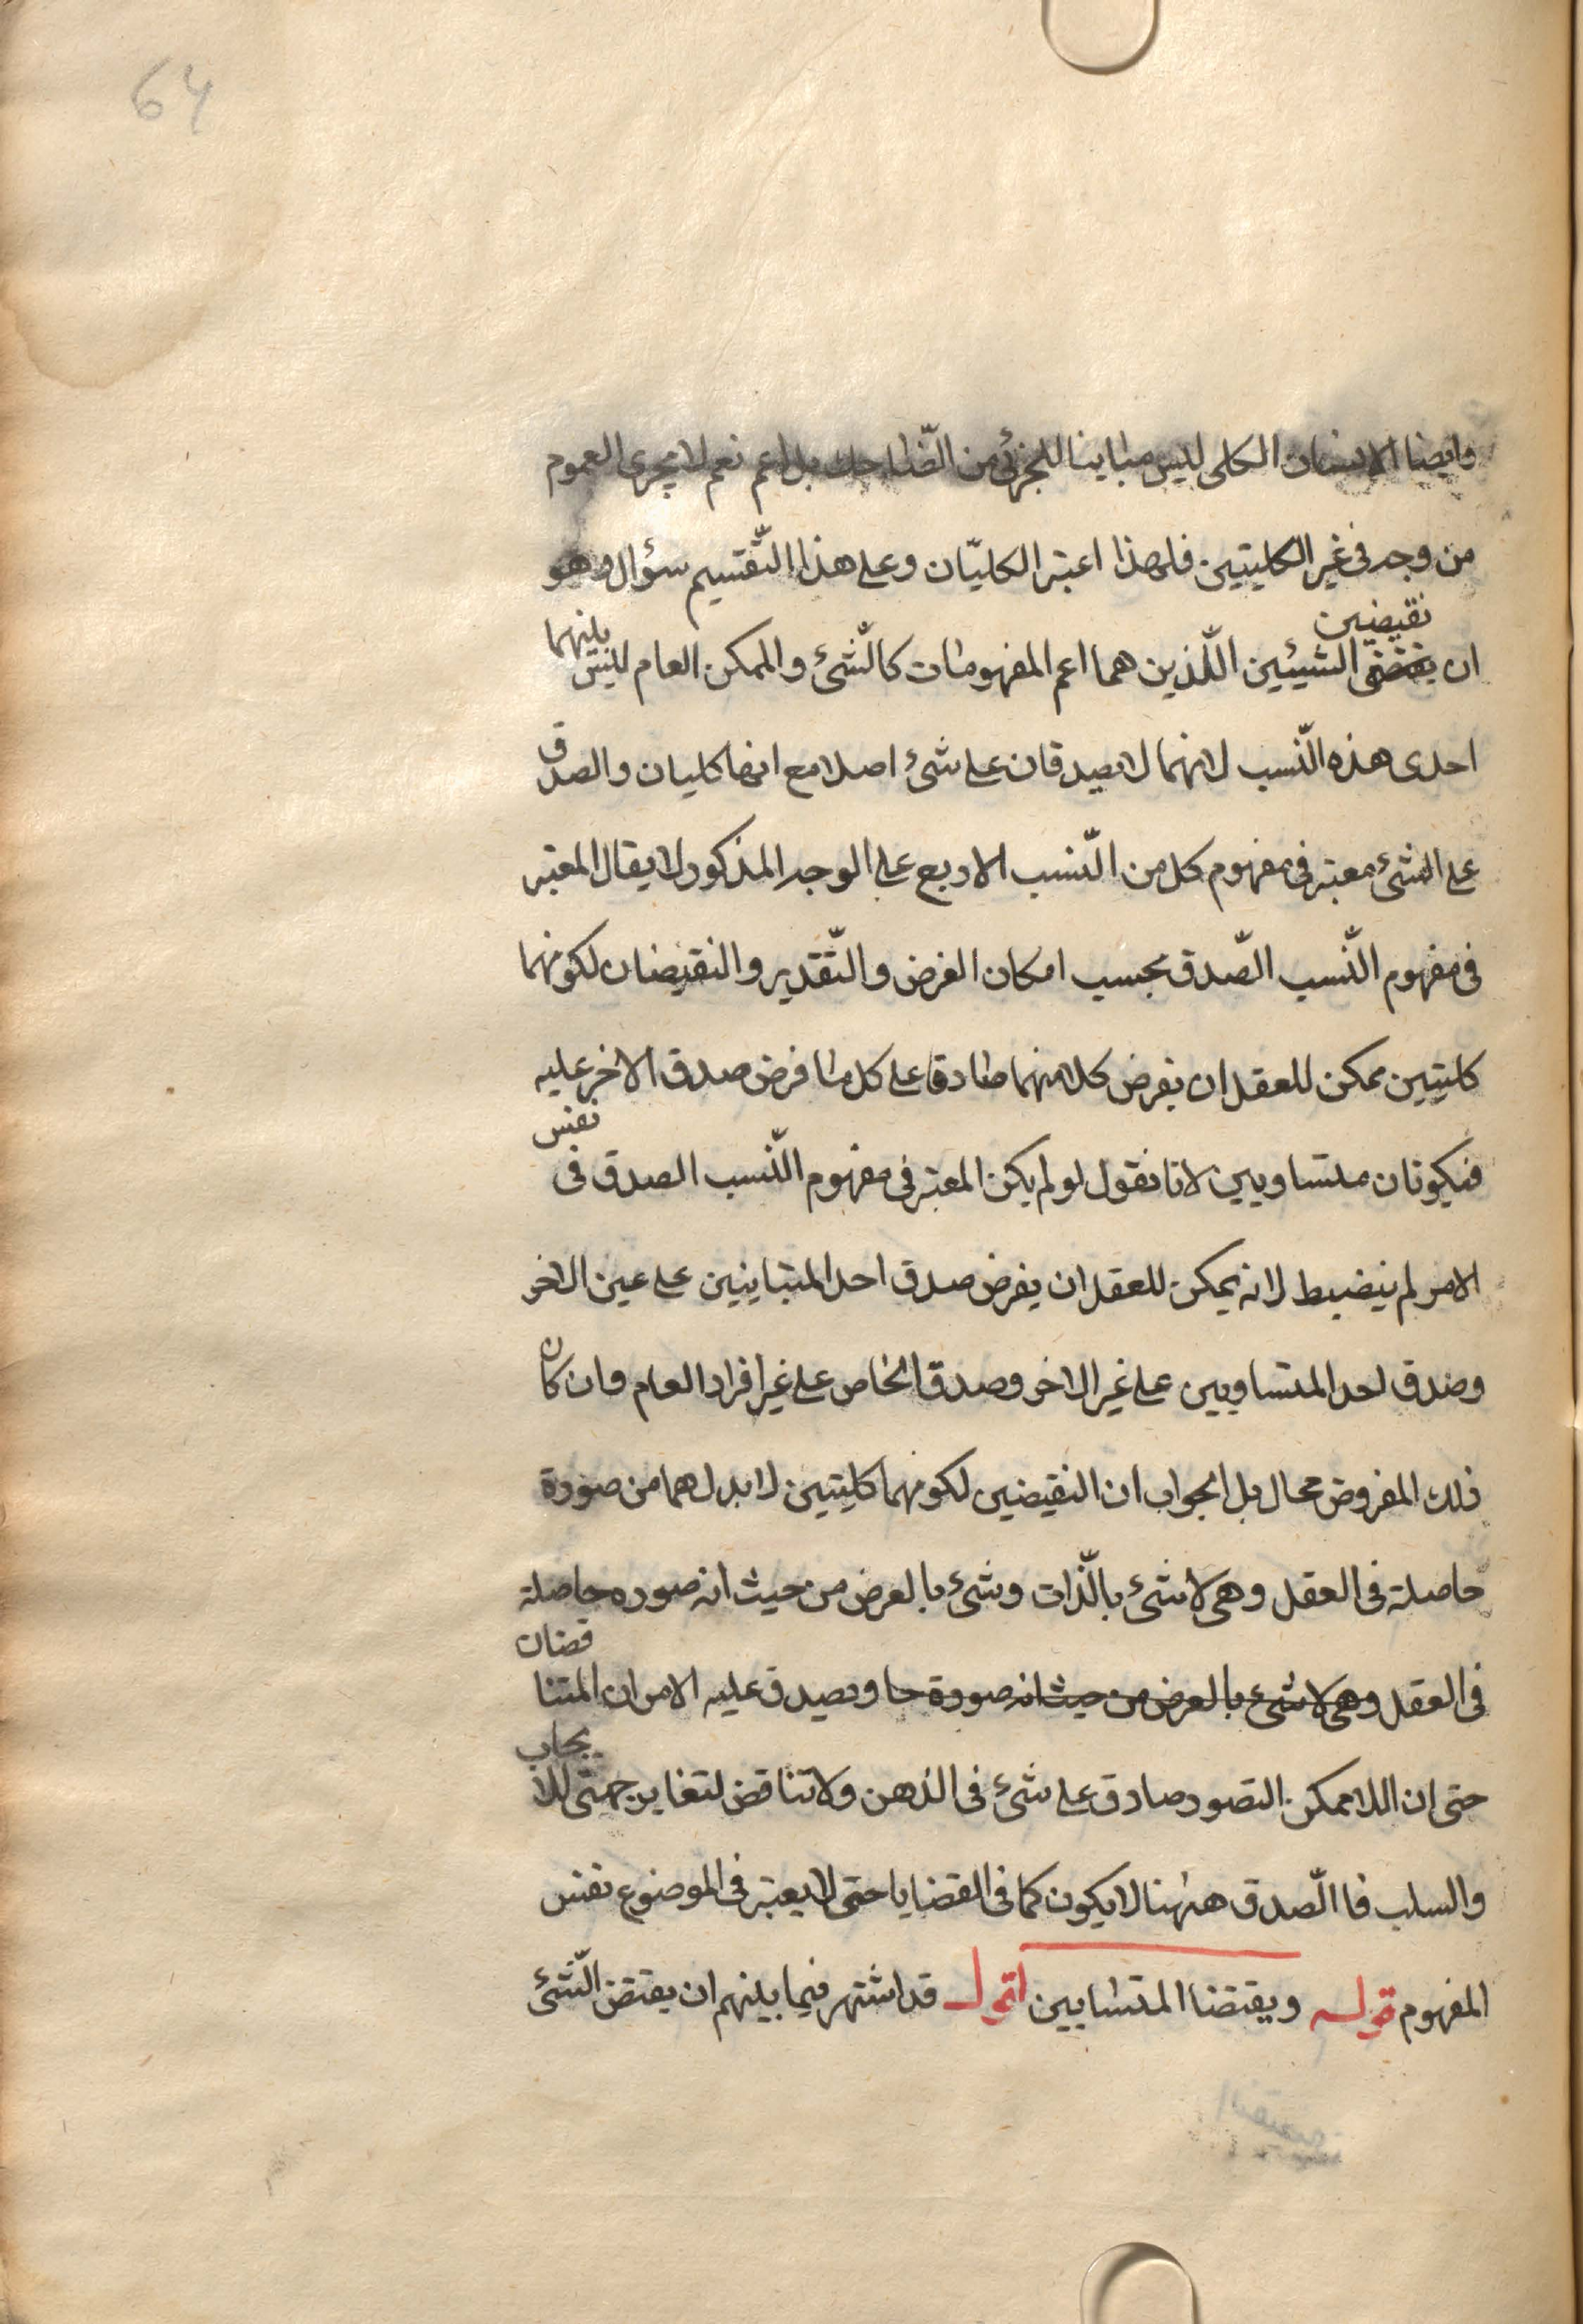 64
وايضا الانسان الكلى ليس مباينا للجزئى من الضاحك بل اعم نعم لا يجرى العموم
من وجه فى غير الكليتين فلهذا اعتبر الكليّان وعلى هذا التّقسيم سؤال وهو
نقيضين
ان الشيئين اللّذين هما اعم المفهومات كالشّئ والممكن العام ليس بينهما
احدى هذه النّسب لانهما لا يصدقان على شئ اصلا مع انهما كليان والصدق
على الشئ معتبر فى مفهوم كل من النّسب الاربع على الوجه المذكور لا يقال المعتبر
فى مفهوم النّسب الصّدق بحسب امكان الفرض والتّقدير والنقيضان لكونهما
كليتين ممكن للعقل ان يفرض كلا منهما صادقا على كل ما فرض صدق الاخر عليه
فيكونان متساويين لانا نقول لو لم يكن المعتبر فى مفهوم النّسب الصدق فى نفس
الامر لم ينضبط لانه يمكن للعقل ان يفرض صدق احد المتباينين على عين الاخر
وصدق احد المتساويين على غير الاخر وصدق الخاص على غير افراد العام وان كان
ذلك المفروض محال بل الجواب ان النقيضين لكونهما كليتين لا بد لهما من صورة
حاصلة فى العقل وهى لا شئ بالذّات وشئ بالعرض من حيث انه صوره حاصلة
فى العقل وهى لا شئ بالعرض من حيث انه صورة حا وتصدق عليه الامران المتناقضان
حتى ان اللا ممكن التصور صادق على شئ فى الذهن ولا تناقض لتغاير جهتى للايجاب
والسلب فا الصّدق ههنا لا يكون كما فى القضايا حتى لا يعتبر فى الموضوع نفس
المفهوم قوله ويقتضا المتشابين اقول قد اشتهر فيما بينهم ان يقتض الشّئ